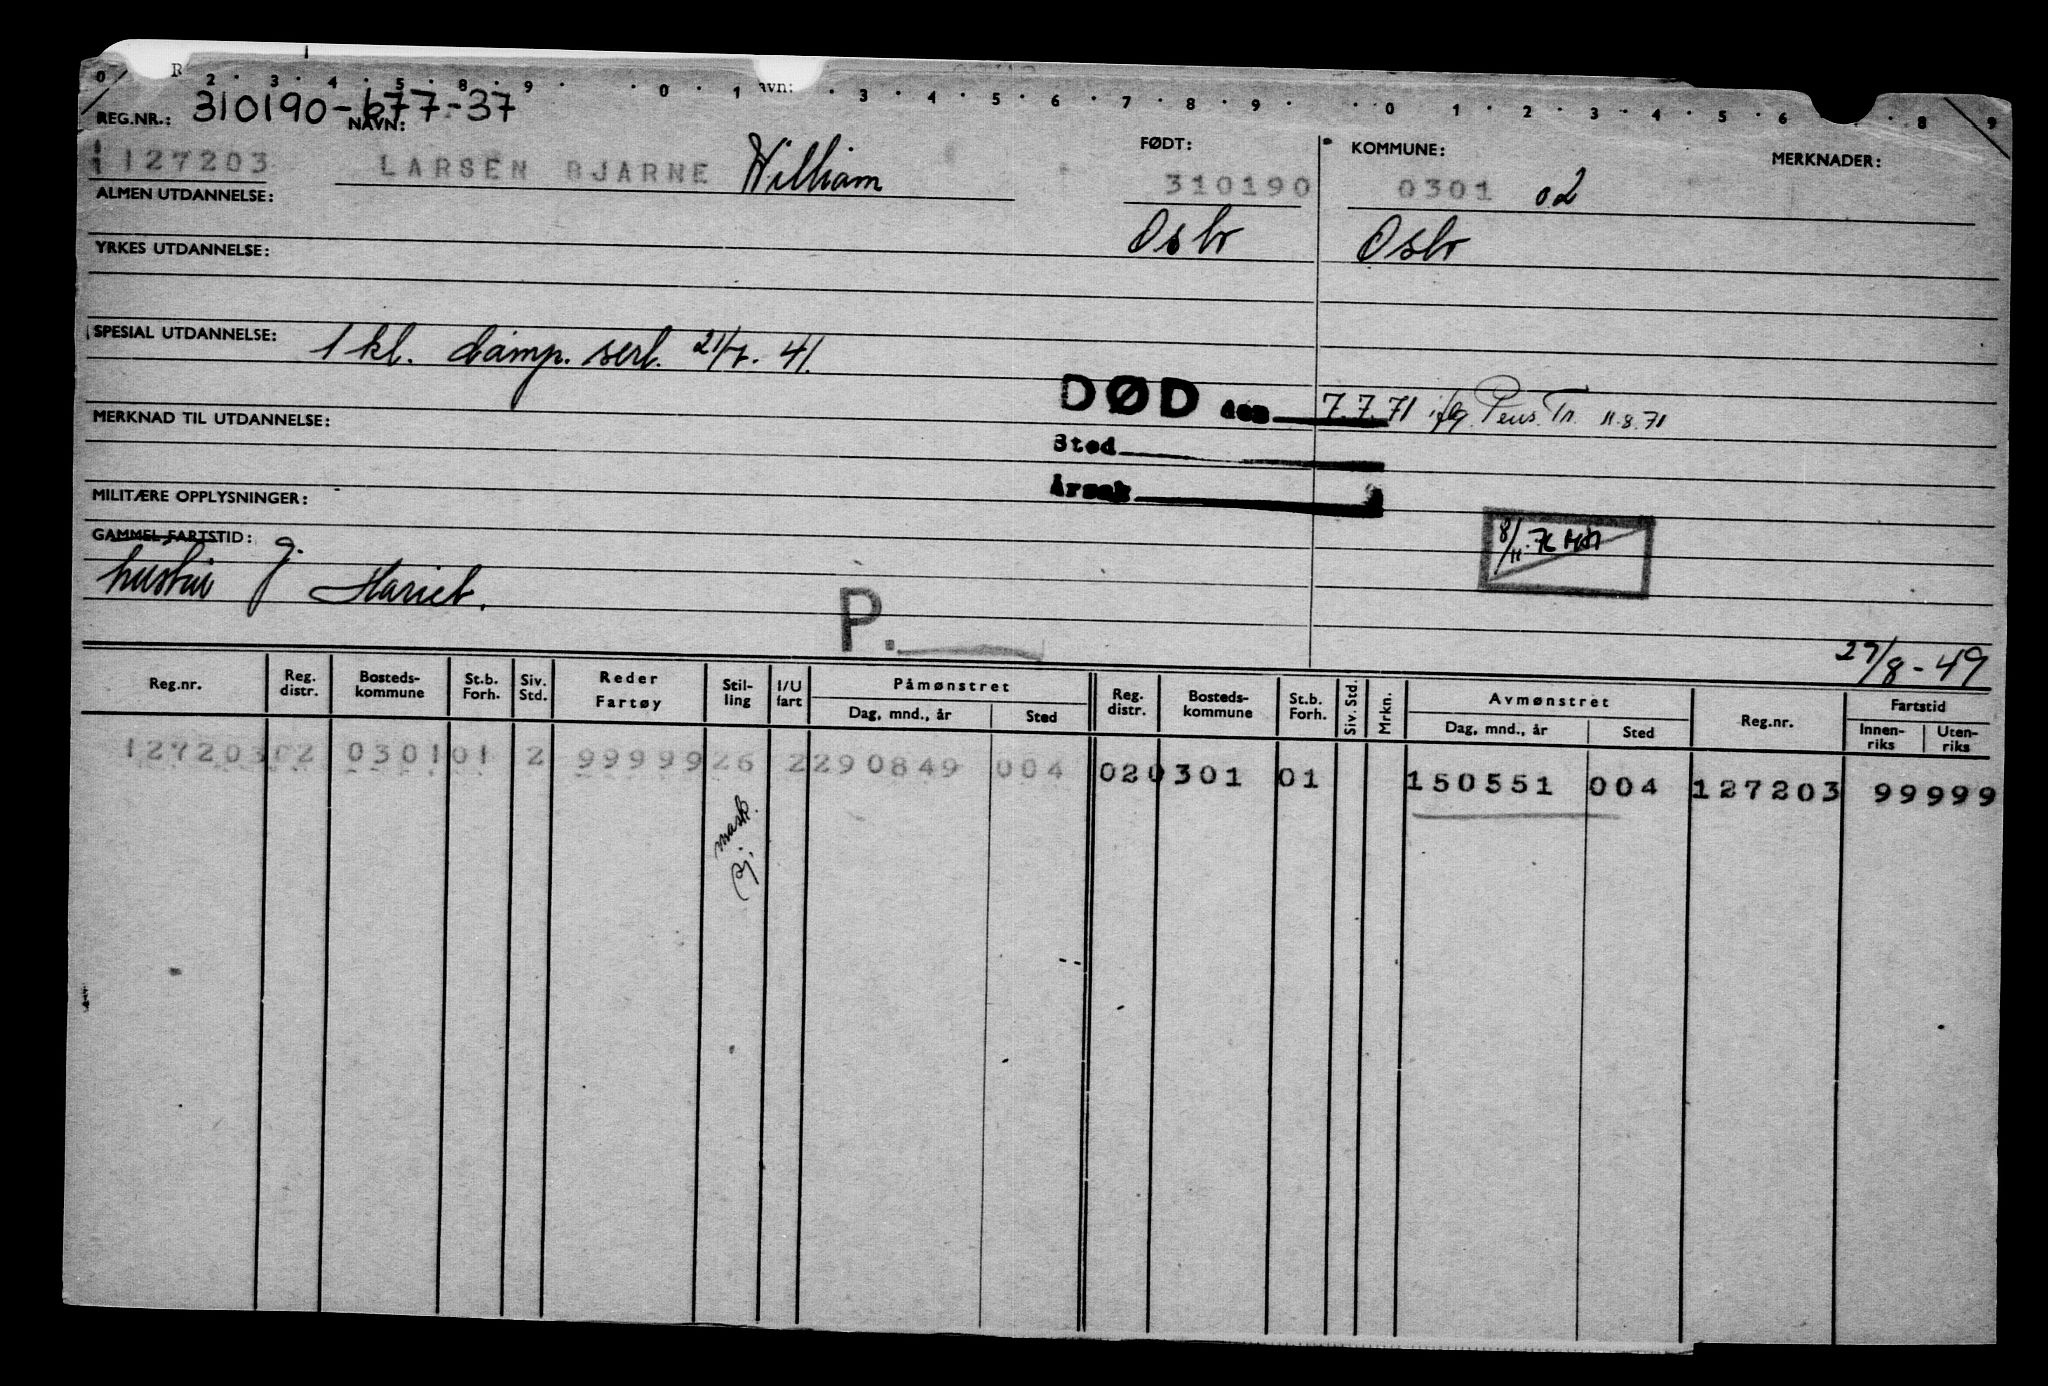 0 R 2 · 3 · 4 · 5 · 8 · 9 · · 0 · 1 avn: · 3 · 4 · 5 · 6 · 7 · 8 · 9 · · 0 · 1 · 2 · 3 · 4 · 5 · 6 · 8 9
REG.NR.: 310190-677-37
NAVN: FØDT: KOMMUNE: MERKNADER:
127203 LARSEN BJARNE William 310190 0301 02
ALMEN UTDANNELSE: Oslo Oslo
YRKES UTDANNELSE:
SPESIAL UTDANNELSE: 1 kl. damp. serl. 21/7. 41.
DØD den 7.7.71 iflg. Pens. Tr. 11.8.71
MERKNAD TIL UTDANNELSE:
Sted
Årsak
MILITÆRE OPPLYSNINGER:
8/11. 76
GAMMEL FARTSTID: g.
hustru Hariet.
P.
29/8-49
Reg.nr. Reg. distr. Bosteds-kommune St.b. Forh. Siv. Std. Reder Fartøy Stil-ling I/U fart Påmønstret Dag, mnd., år Sted Reg. distr. Bosteds-kommune St.b. Forh. Siv. Std. Mrkn. Avmønstret Dag, mnd., år Sted Reg.nr. Fartstid Innen-riks Uten-riks
127203 02 0301 01 2 99999 26 2 290849 004 02 0301 01 150551 004 127203 99999
mask.